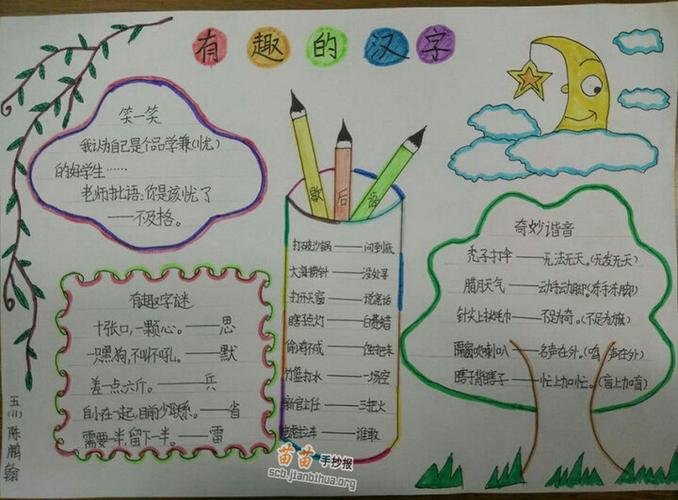 有趣的汉字
笑一笑
我认为自己是个品学兼(忧)
的好学生……
老师批语:你是该忧了
——不及格。
有趣字谜
十张口,一颗心。——思
一只黑狗,不叫不吼。——默
差一点六斤。——兵
自小在一起,目前少联系。——省
需要一半,留下一半。——雷
歇后语
打破沙锅——问到底
大海捞针——没处寻
打开天窗——说亮话
瞎子点灯——白费蜡
偷鸡不成——蚀把米
竹篮打水——一场空
新官上任——三把火
——谁敢
奇妙谐音
秃子打伞——无法无天。(无发无天)
腊月天气——动手动脚。(冻手冻脚)
针尖上拔毛巾——不足为奇。(不足为旗)
隔窗吹喇叭——名声在外。(鸣声在外)
瞎子背瞎子——忙上加忙。(盲上加盲)
五(1)陈鹏翰
苗苗手抄报
scb.jianbihua.org